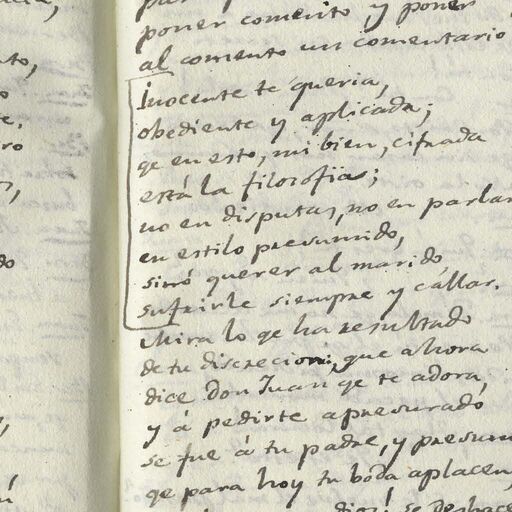 poner comento y poner
al comento un comentario
Inocente te queria,
obediente y aplicada;
qe en esto, mi bien, cifrada
está la filosofia;
no en disputas, no en parlar
en estilo presumido,
sinó querer al marido,
sufrirle siempre y callar.
Mira lo qe ha resultado
de tu discrecion; que ahora
dice Don Juan qe te adora,
y á pedirte apresurado
se fue á tu padre, y presum
qe para hoy tu boda aplacen,